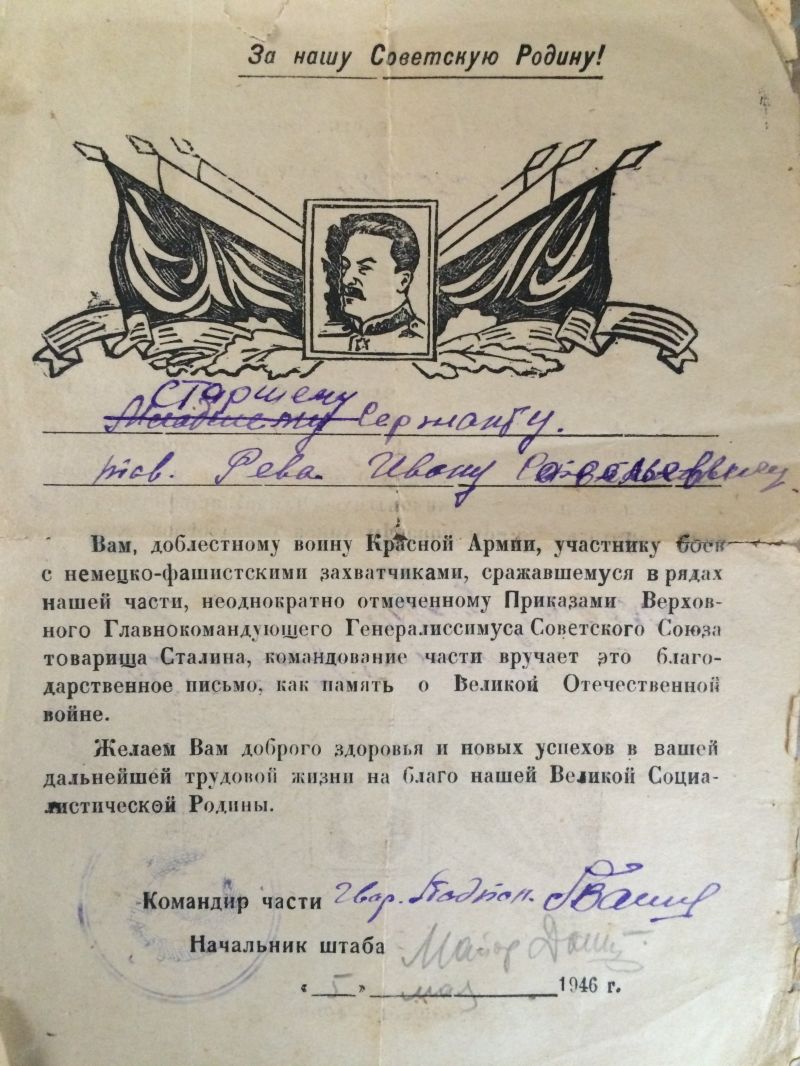 За нашу Советскую Родину!
Старшему
Младшему Сержанту.
тов. Рева Ивану
Вам, доблестному воину Красной Армии, участнику боев
с немецко-фашистскими захватчиками, сражавшемуся в рядах
нашей части, неоднократно отмеченному Приказами Верхов-
ного Главнокомандующего Генералиссимуса Советского Союза
товарища Сталина, командование части вручает это благо-
дарственное письмо, как память о Великой Отечественной
войне.
Желаем Вам доброго здоровья и новых успехов в вашей
дальнейшей трудовой жизни на благо нашей Великой Социа-
листической Родины.
Командир части Гвар. Подпол.
Начальник штаба Майор
« 5 » мая 1946 г.